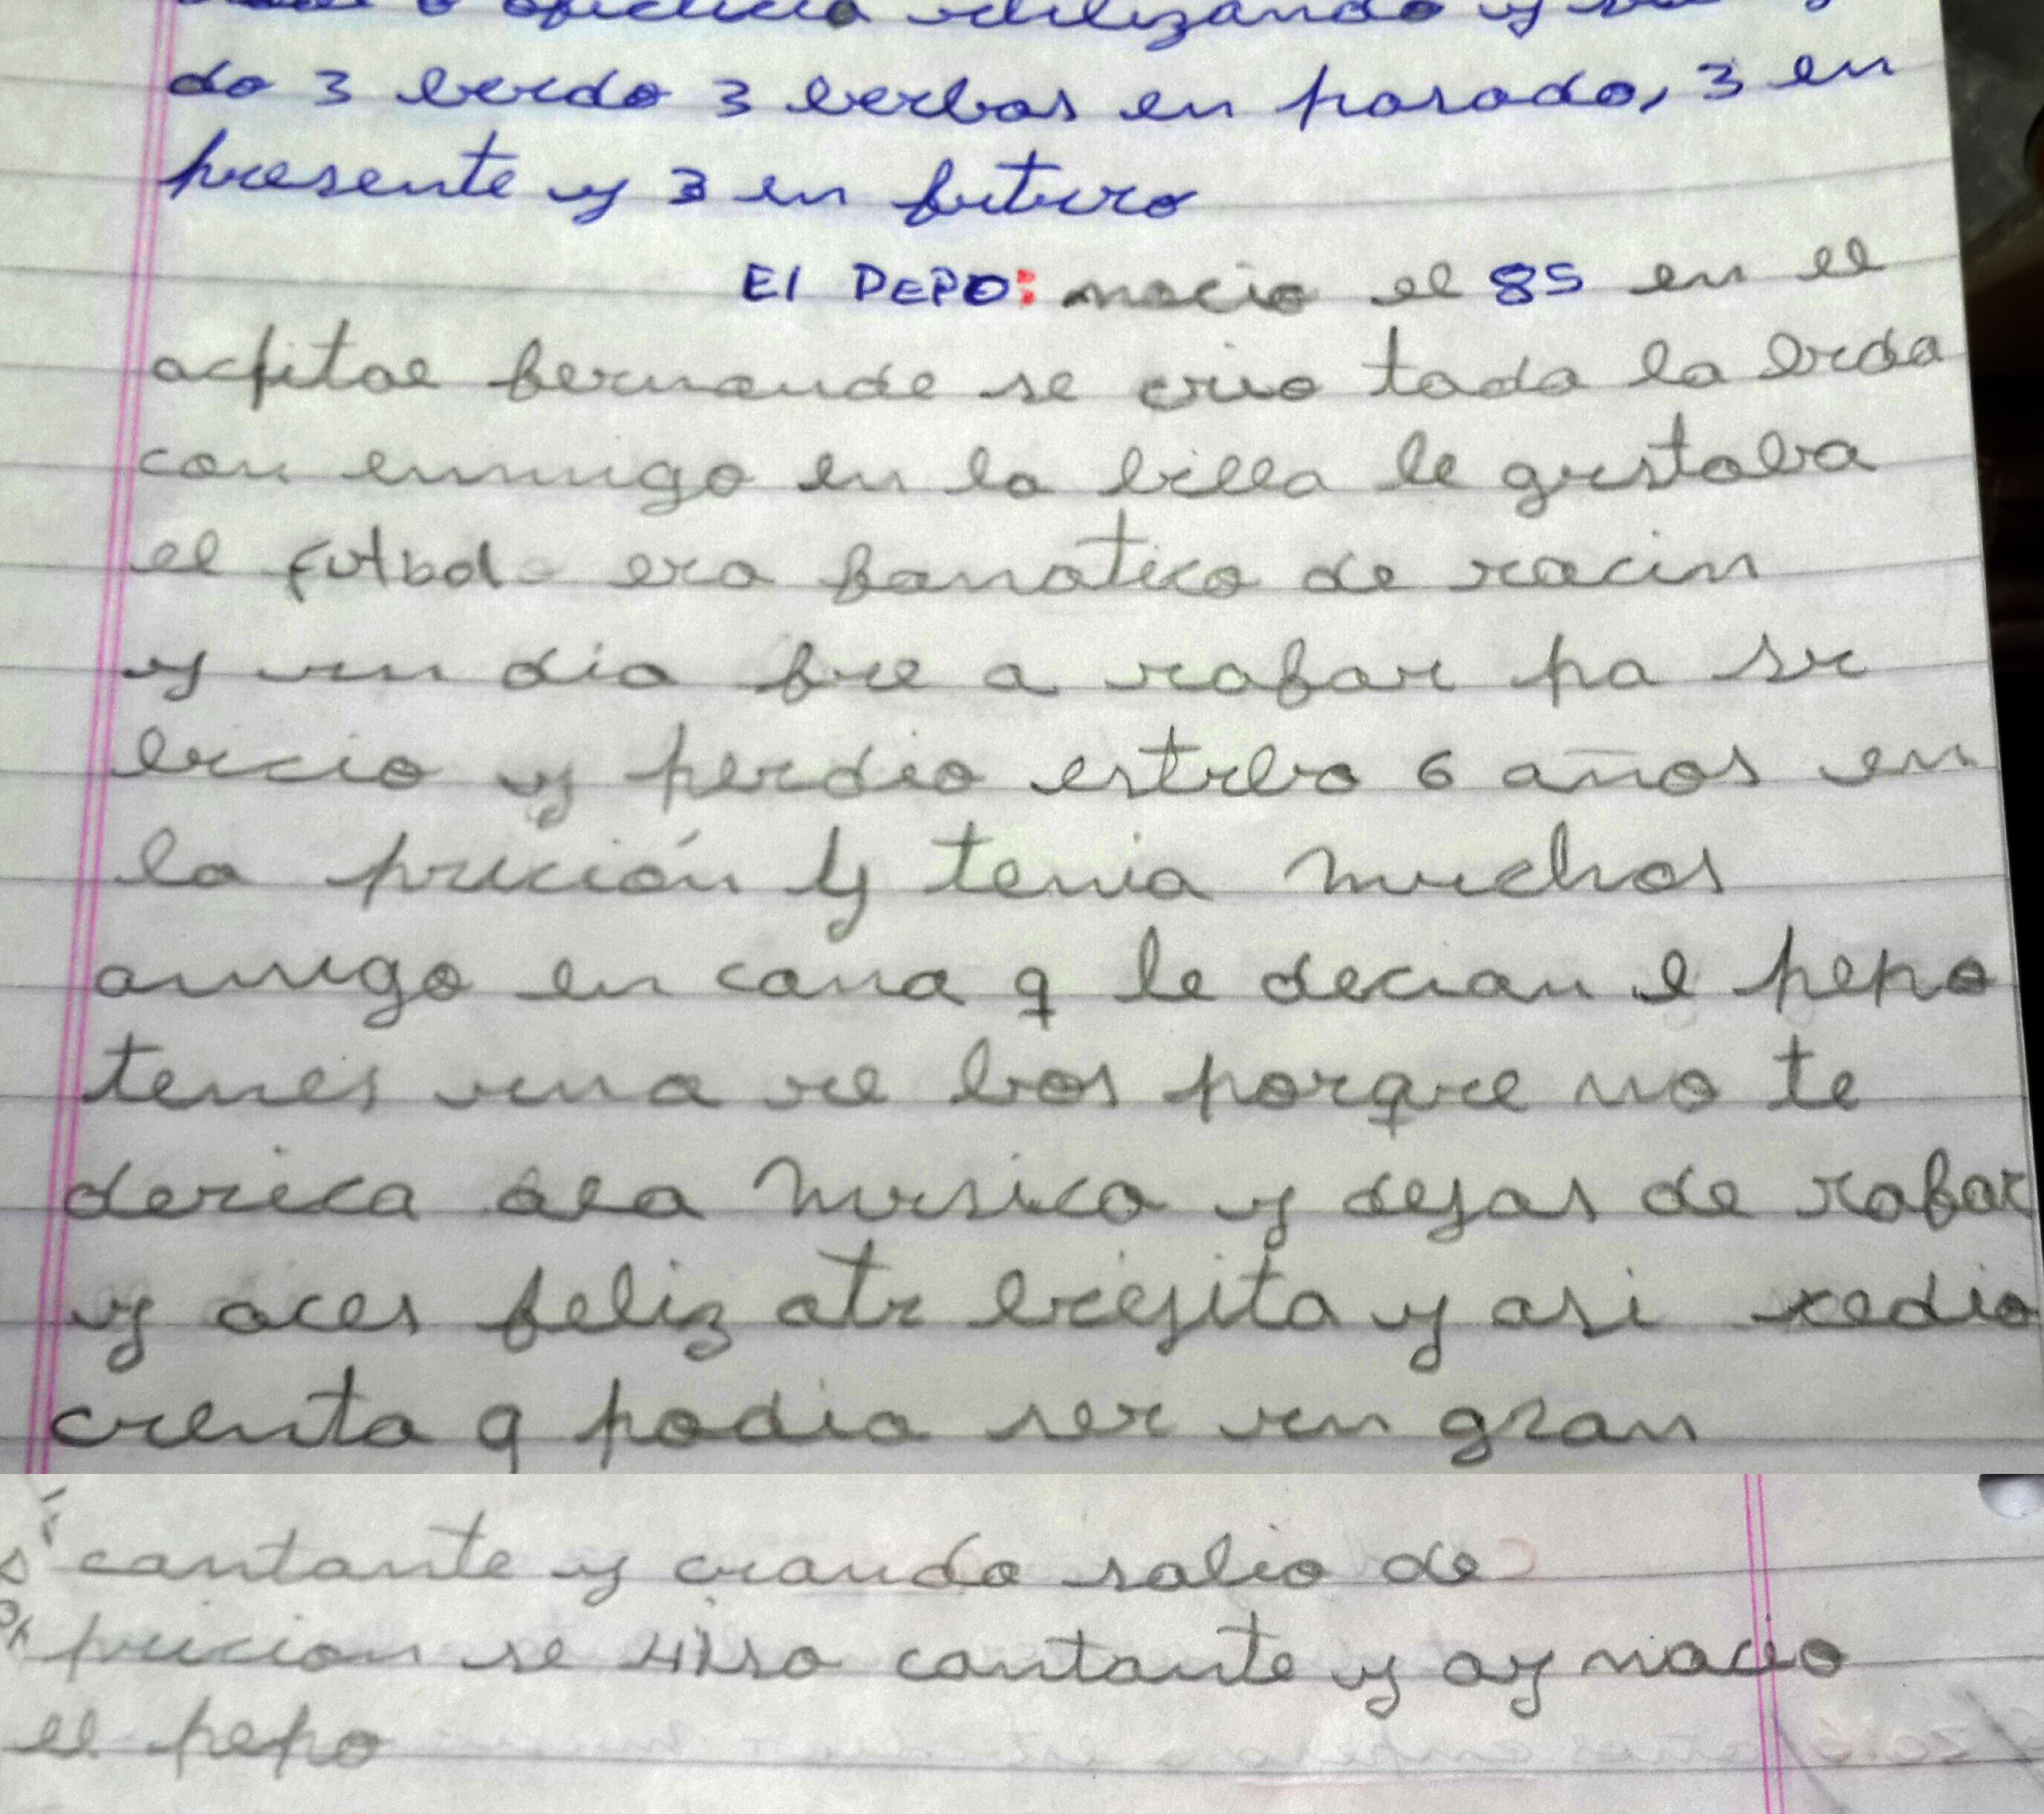 utilizando y
do 3 verdo 3 verbos en pasado, 3 en
presente y 3 en futuro
El PEPO: nacio el 85 en el
acpital fernande se crio toda la vida
con enmigo en la villa le gustava
el futbol era fanatico de racin
y un dia fue a robar pa su
vicio y perdio estuvo 6 años en
la prición y tenia muchos
amigo en cana q le decian e pepo
tenes una re vos porque no te
derica ala musica y dejas de robar
y aces feliz atu viejita y asi redio
cuenta q podia ser un gran
cantante y cuando salio de
pricion se hiso cantante y ay nacio
el pepo